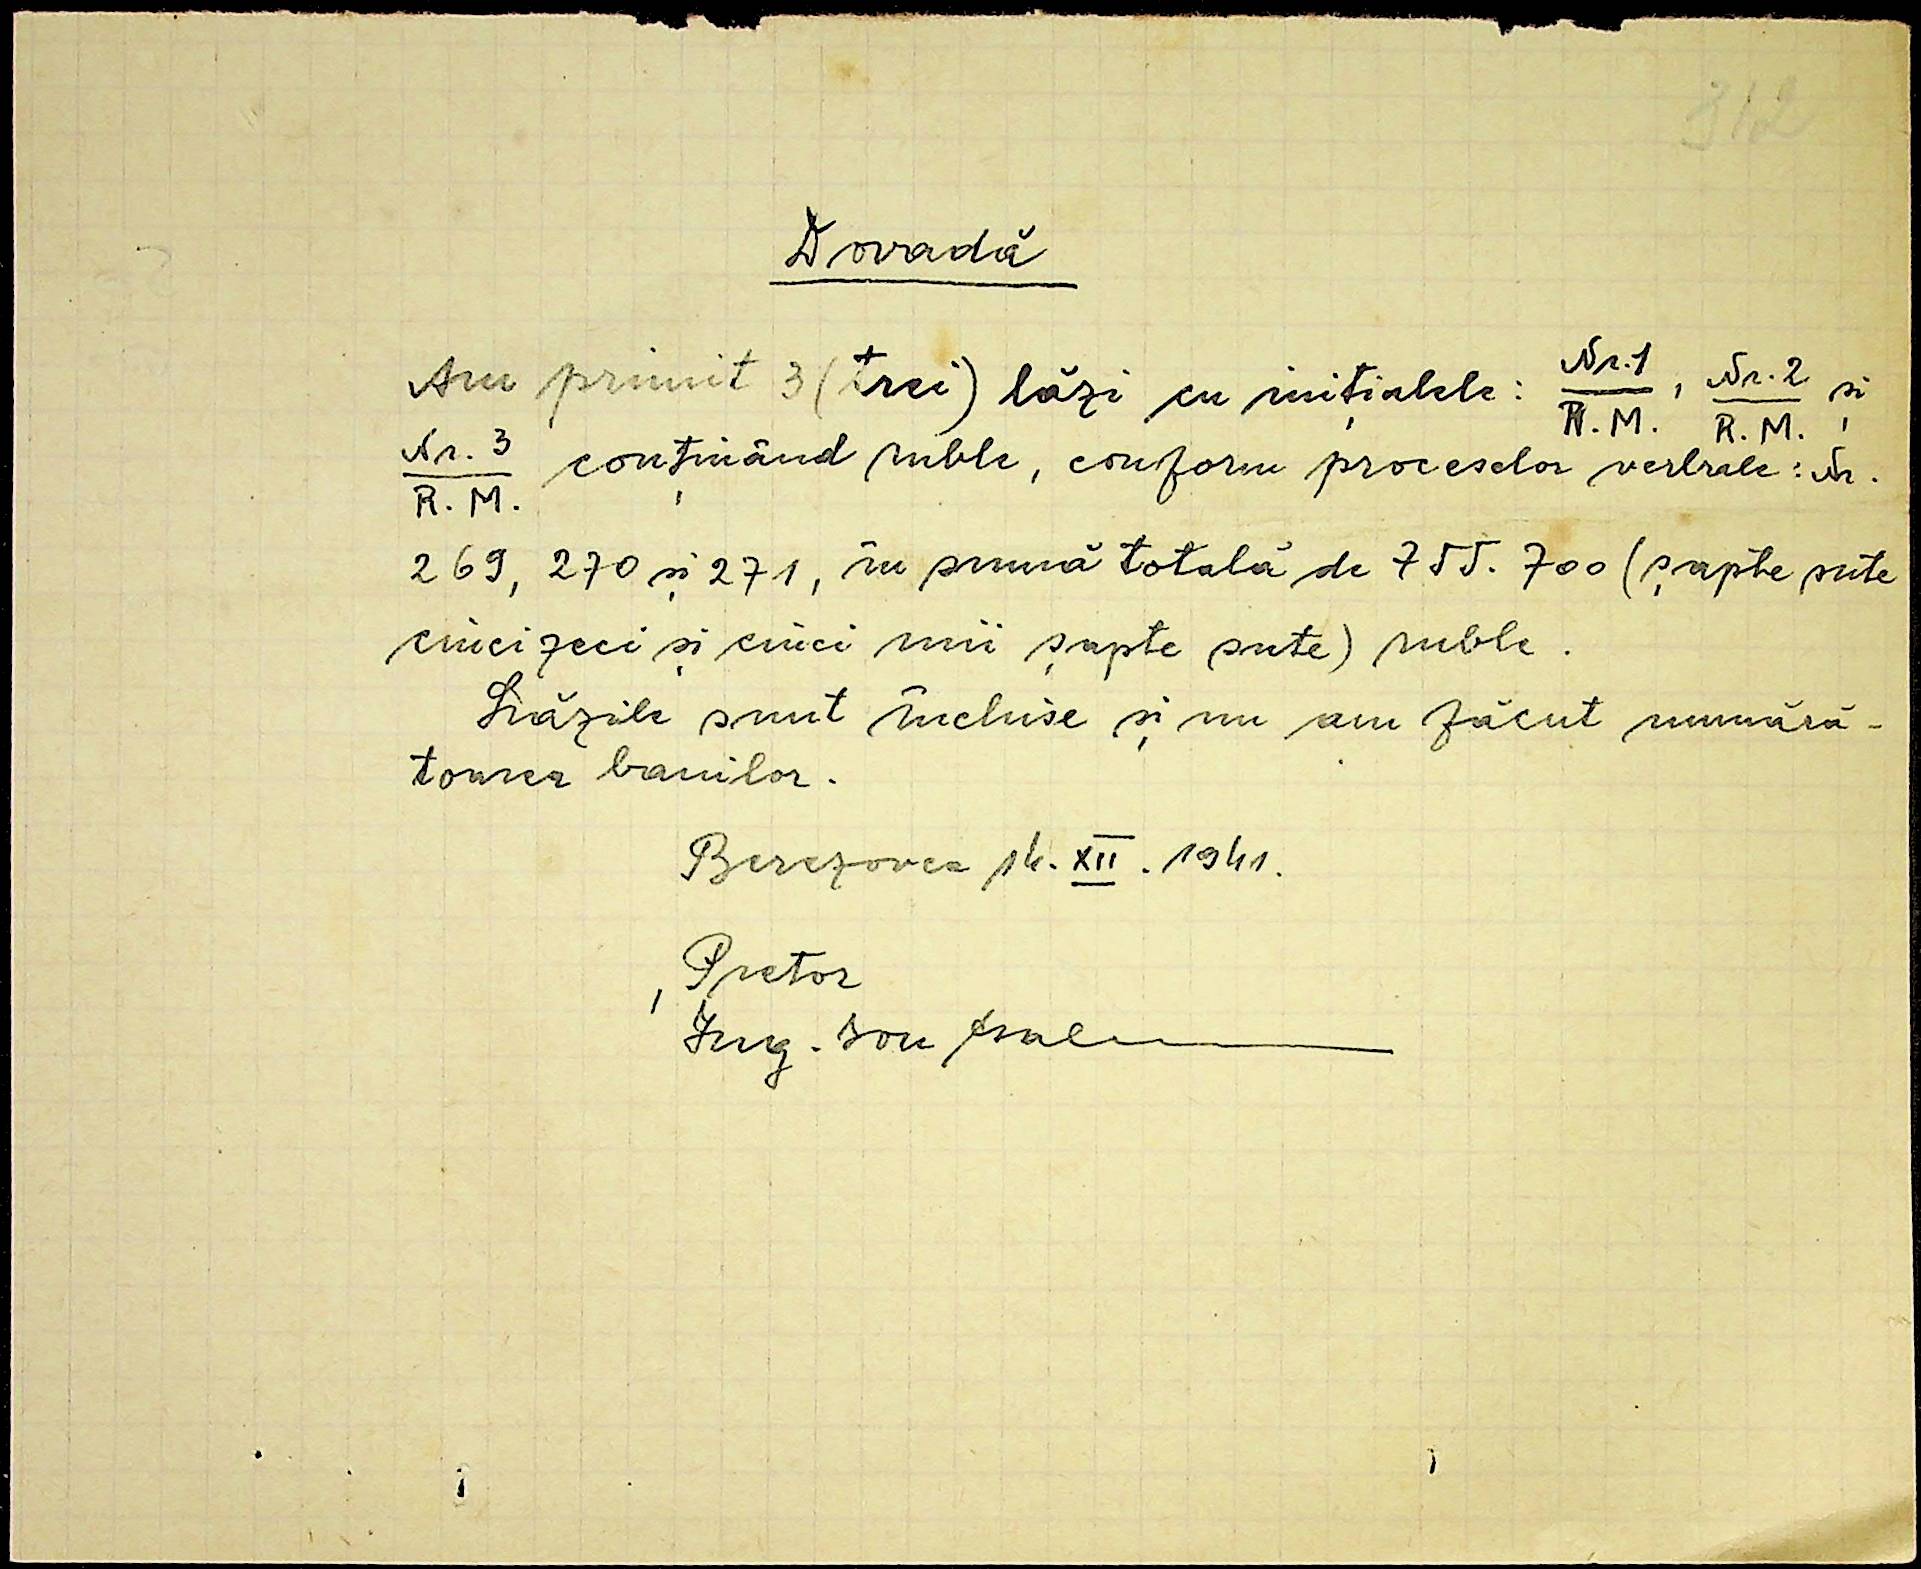 312
Dovadă
Am primit 3 (trei) lăzi cu inițialele: Nr.1/R.M., Nr.2/R.M. și
Nr. 3/R.M. conținând ruble, conform proceselor verbale: Nr.
269, 270 și 271, în sumă totală de 755.700 (șapte sute
cincizeci și cinci mii șapte sute) ruble.
Lăzile sunt închise și nu am făcut numără-
toarea banilor.
Berezovca 14.XII.1941.
Pretor
Ing. Ion